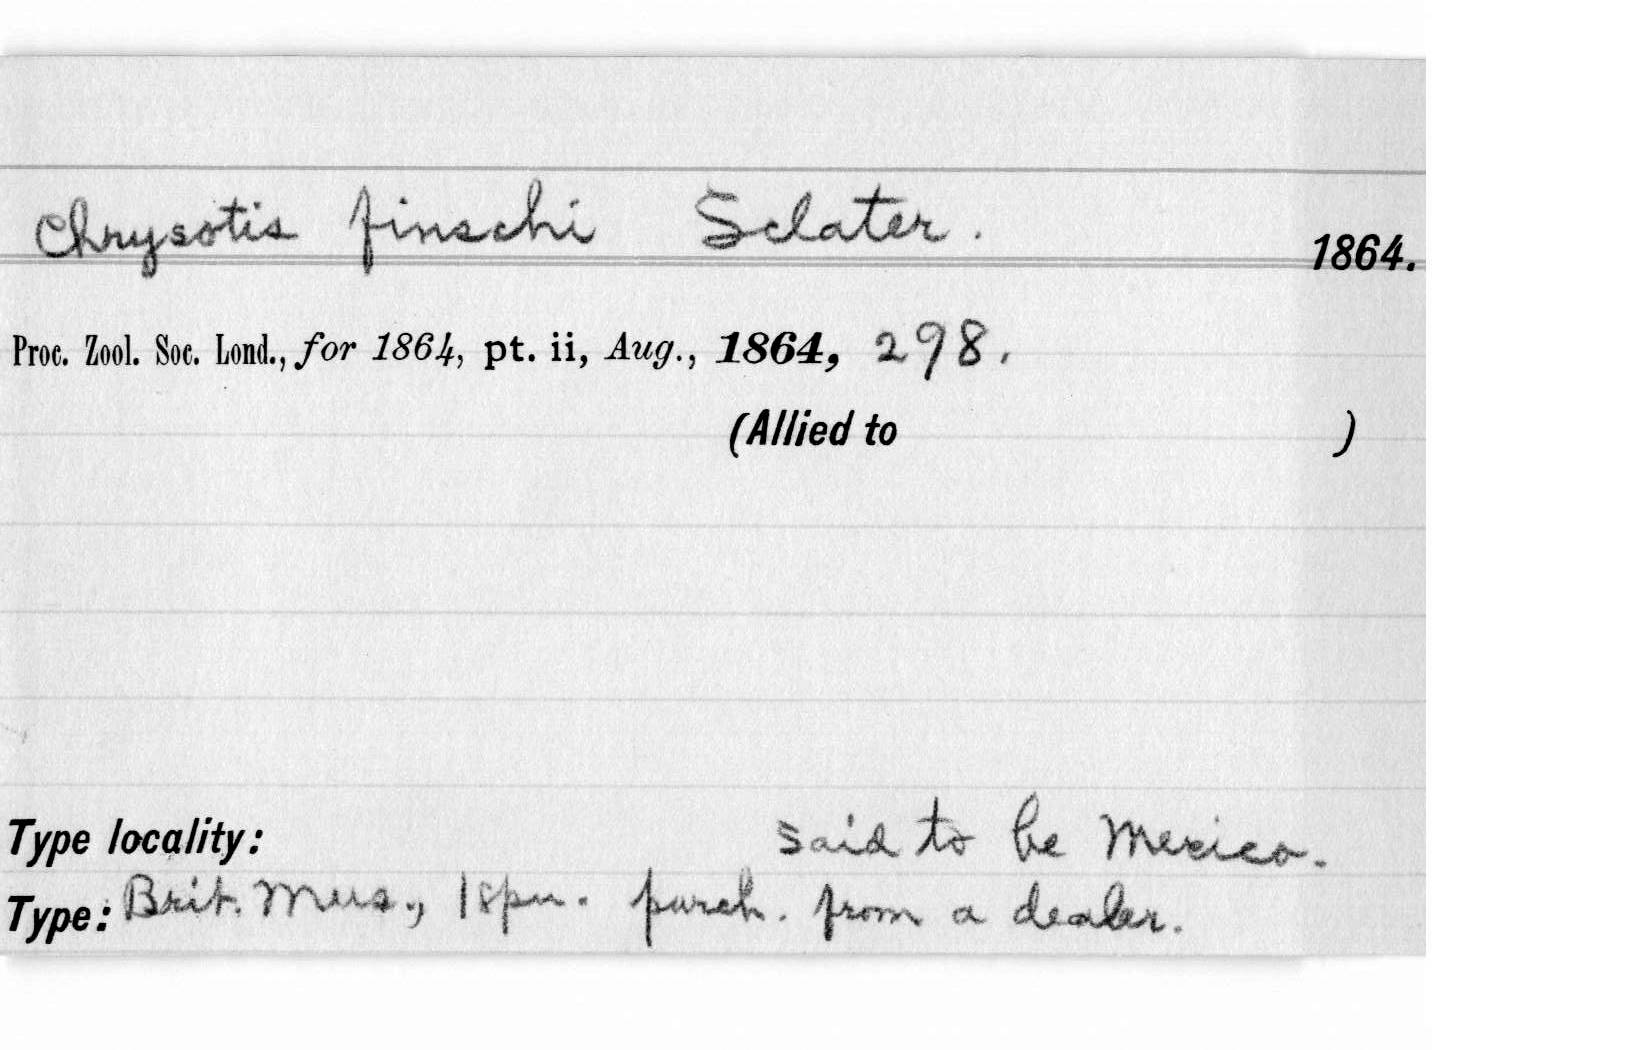 Chrysotis finschi Sclater. 1864.
Proc. Zool. Soc. Lond., for 1864, pt. ii, Aug., 1864, 298.
(Allied to )
Type locality: said to be Mexico.
Type: Brit. Mus., 1 spm. purch. from a dealer.